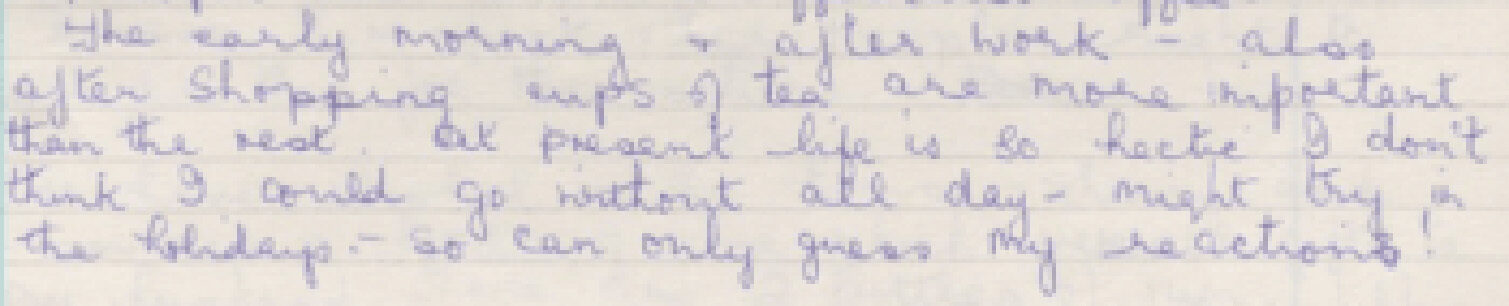 The early morning + after work - also
after shopping cups of tea are more important
than the rest. At present life is so hectic I don't
think I could go without all day - might try in
the holidays. - So can only guess my reactions!